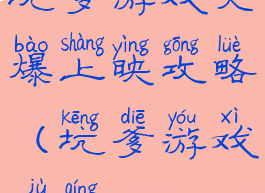 坑爹游戏大
bào shàng yìng gōng lüè
爆上映攻略
kēng diē yóu xì
(坑爹游戏
jù qíng